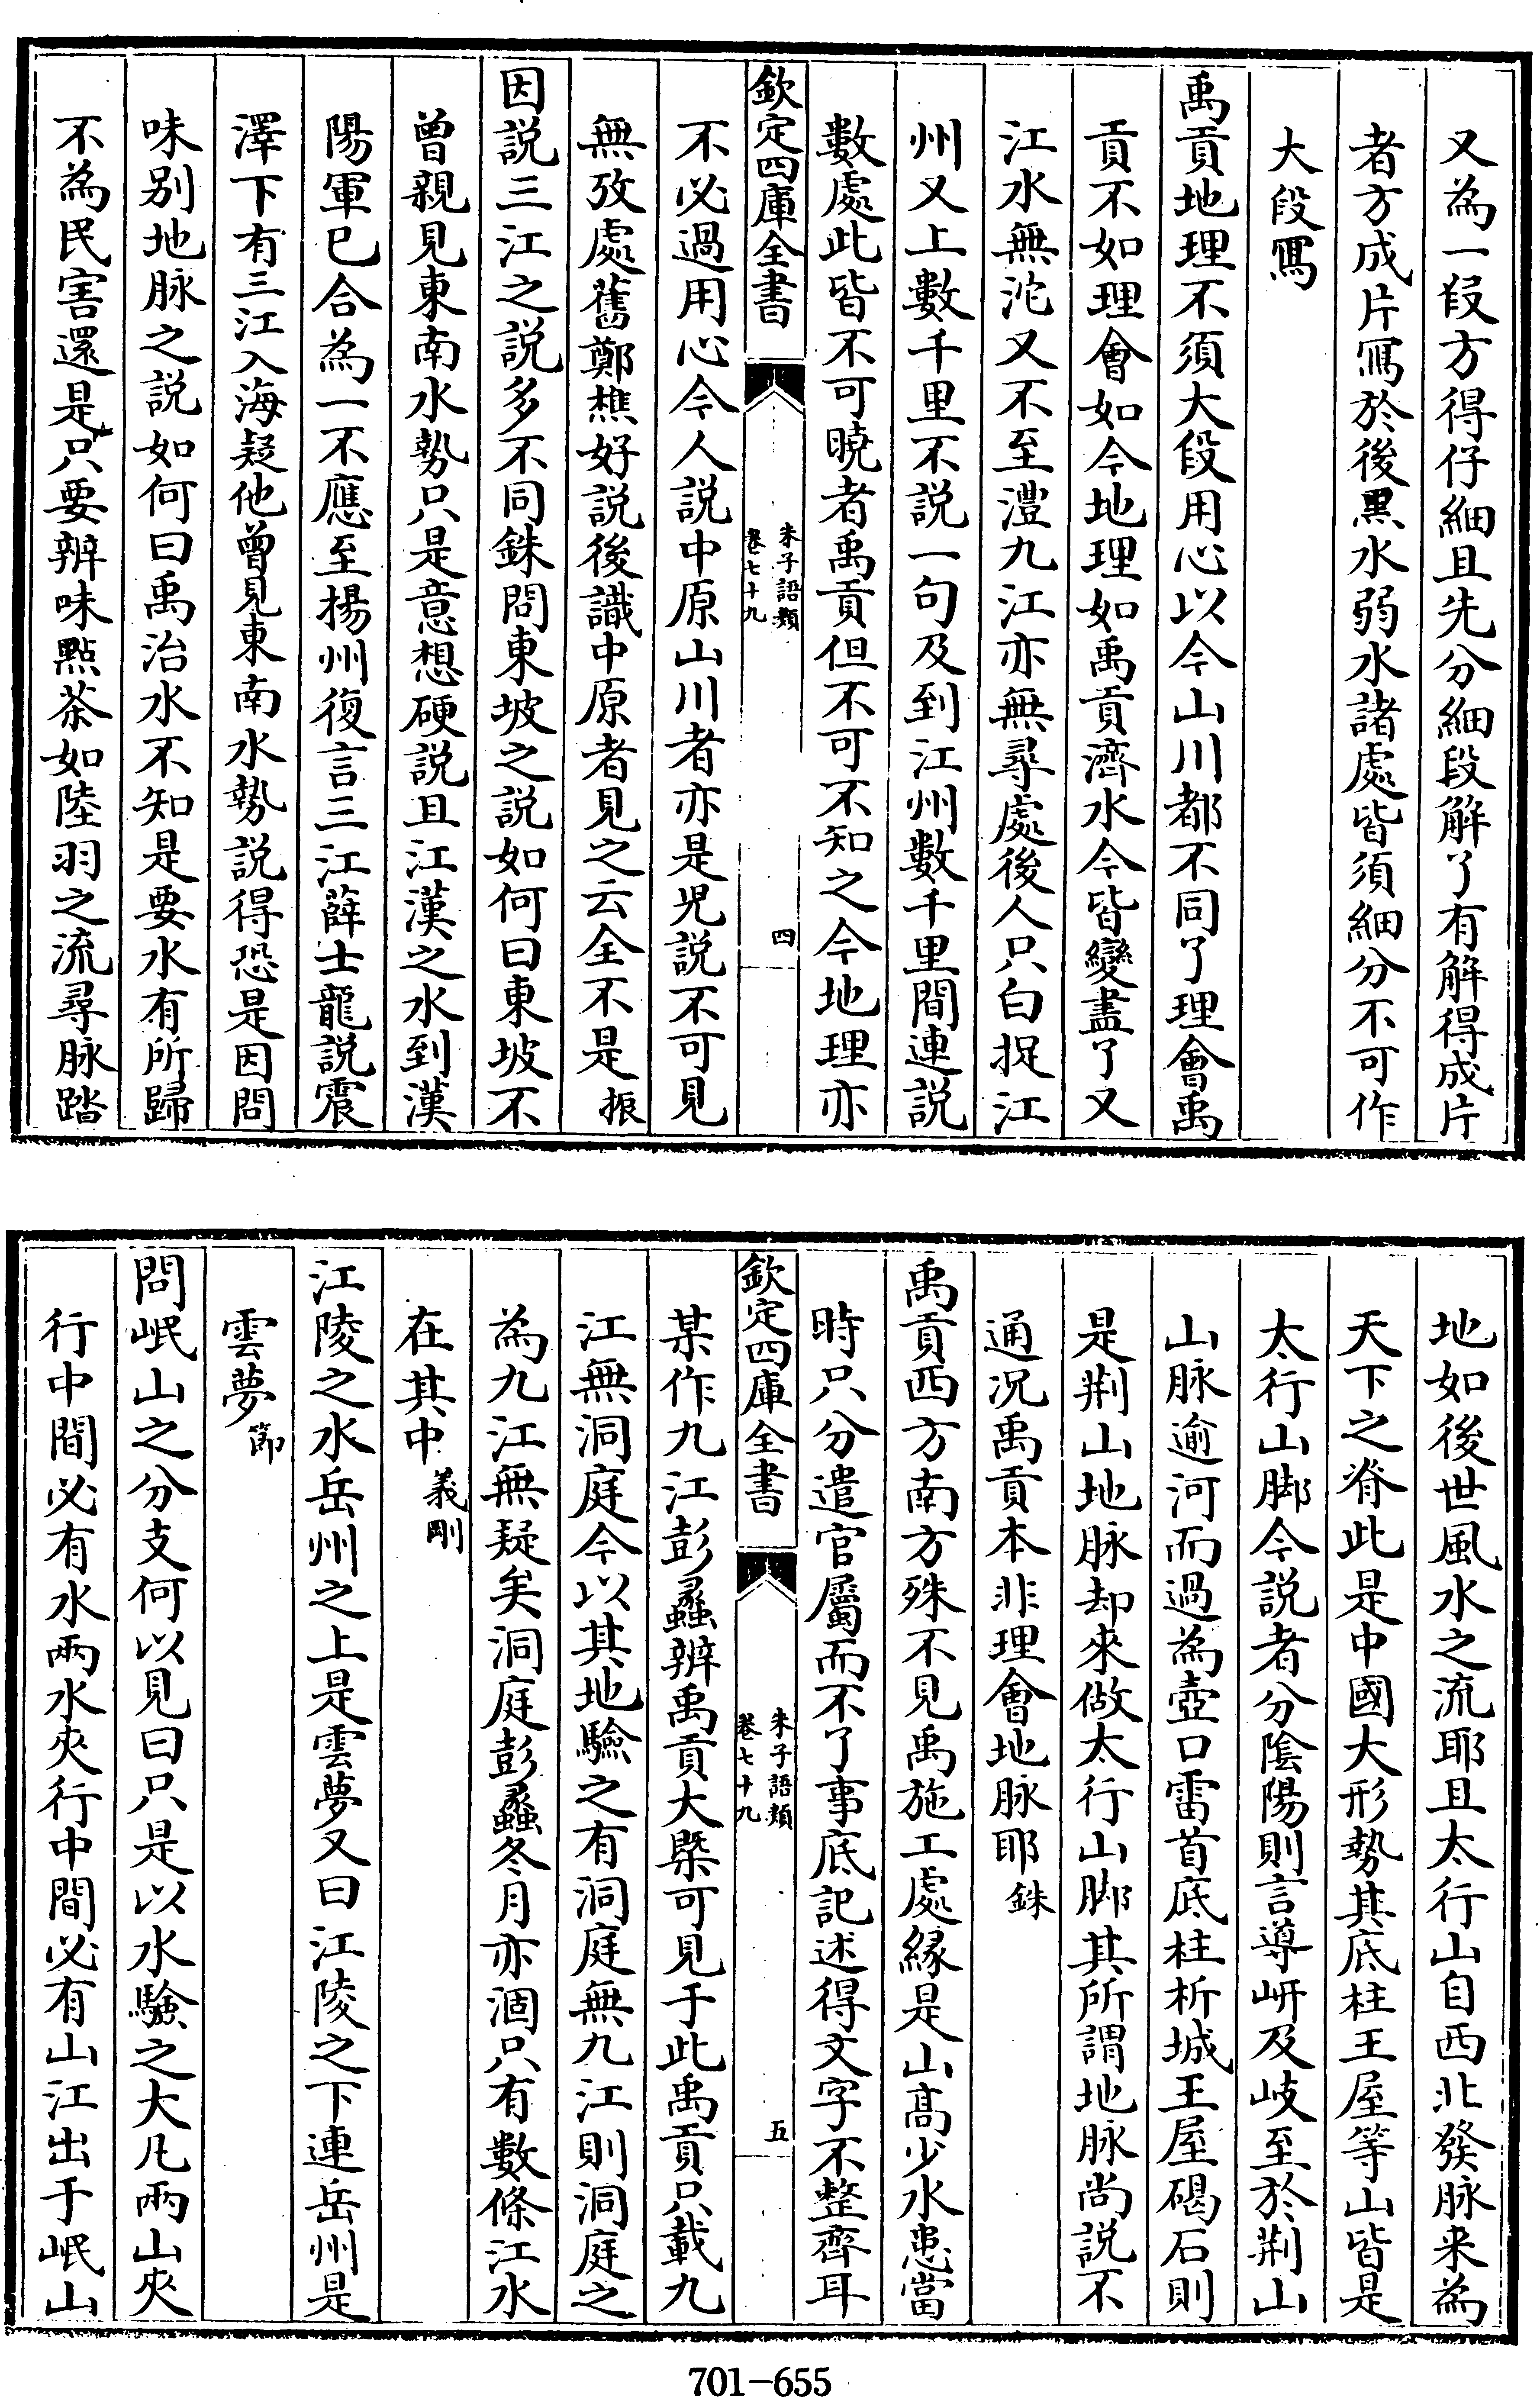 又為一段方得仔細且先分細段解了有解得成片
者方成片寫於後黑水弱水諸處皆須細分不可作
大段寫
禹貢地理不須大段用心以今山川都不同了理會禹
貢不如理會如今地理如禹貢濟水今皆變盡了又
江水無沱又不至澧九江亦無尋處後人只白捉江
州又上數千里不說一句及到江州數千里間連說
數處此皆不可曉者禹貢但不可不知之今地理亦
欽定四庫全書
朱子語類
卷七十九
四
不必過用心今人說中原山川者亦是兒說不可見
無攷處舊鄭樵好說後識中原者見之云全不是振
因說三江之說多不同銖問東坡之說如何曰東坡不
曾親見東南水勢只是意想硬說且江漢之水到漢
陽軍已合為一不應至揚州復言三江薛士龍說震
澤下有三江入海疑他曾見東南水勢說得恐是因問
味别地脉之說如何曰禹治水不知是要水有所歸
不為民害還是只要辨味點茶如陸羽之流尋脉踏
地如後世風水之流耶且太行山自西北發脉来為
天下之脊此是中國大形勢其底柱王屋等山皆是
太行山脚今說者分陰陽則言導岍及岐至於荆山
山脉逾河而過為壺口雷首底柱析城王屋碣石則
是荆山地脉却來做太行山脚其所謂地脉尚說不
通况禹貢本非理會地脉耶銖
禹貢西方南方殊不見禹施工處緣是山髙少水患當
時只分遣官屬而不了事底記述得文字不整齊耳
欽定四庫全書
朱子語類
卷七十九
五
某作九江彭蠡辨禹貢大槩可見于此禹貢只載九
江無洞庭今以其地驗之有洞庭無九江則洞庭之
為九江無疑矣洞庭彭蠡冬月亦涸只有數條江水
在其中義剛
江陵之水岳州之上是雲夢又曰江陵之下連岳州是
雲夢節
問岷山之分支何以見曰只是以水驗之大凡兩山夾
行中間必有水兩水夾行中間必有山江出于岷山
701-655